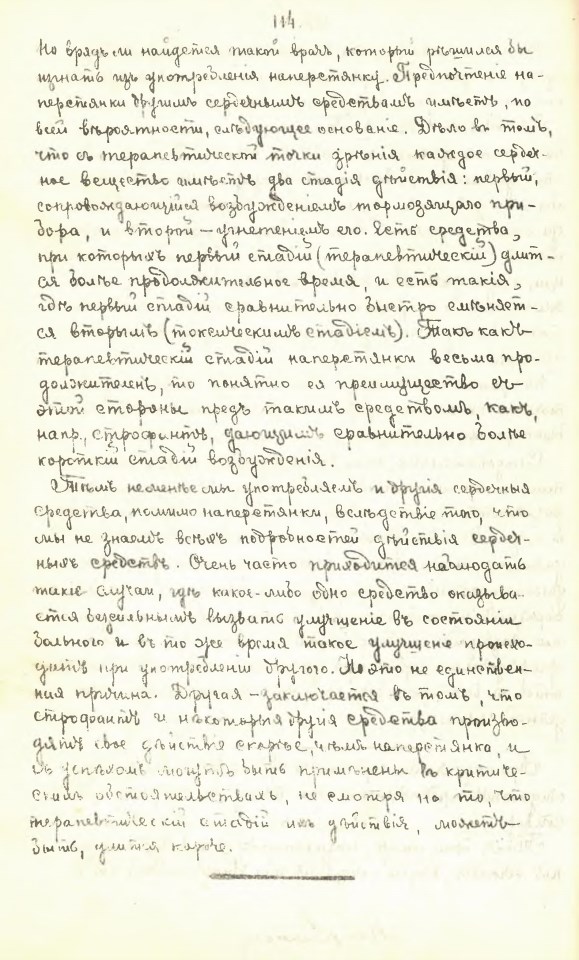 114
Но врядъ ли найдется такой врачъ, который рѣшился бы
изгнать изъ употребленія наперстянку. Предпочтеніе на-
перстянки другимъ сердечнымъ средствамъ имѣетъ, по
всей вѣроятности, слѣдующее основаніе. Дѣло въ томъ,
что съ терапевтической точки зрѣнія каждое сердеч-
ное вещество имѣетъ два стадія дѣйствія: первый,
сопровождающійся возбужденіемъ тормозящаго при-
бора, и второй – угнетеніемъ его. Есть средства,
при которыхъ первый стадій (терапевтическій) длит-
ся болѣе продолжительное время, и есть такія,
гдѣ первый стадій сравнительно быстро смѣняет-
ся вторымъ (токсическимъ стадіемъ). Такъ какъ
терапевтическій стадій наперстянки весьма про-
должителенъ, то понятно ея преимущество съ
этой стороны предъ такимъ средствомъ, какъ,
напр., строфантъ, дающимъ сравнительно болѣе
короткій стадій возбужденія.
Тѣмъ не менѣе мы употребляемъ и другія сердечныя
средства, помимо наперстянки, вслѣдствіе того, что
мы не знаемъ всѣхъ подробностей дѣйствія сердеч-
ныхъ средствъ. Очень часто приходится наблюдать
такіе случаи, гдѣ какое-либо одно средство оказыва-
ется безсильнымъ вызвать улучшеніе въ состояніи
больного и въ то же время такое улучшеніе происхо-
дитъ при употребленіи другого. Но это не единствен-
ная причина. Другая – заключается въ томъ, что
строфантъ и нѣкоторыя другія средства произво-
дятъ свое дѣйствіе скорѣе, чѣмъ наперстянка, и
съ успѣхомъ могутъ быть примѣнены въ критиче-
скихъ обстоятельствахъ, не смотря на то, что
терапевтическій стадій ихъ дѣйствія, можетъ
быть, длится короче.